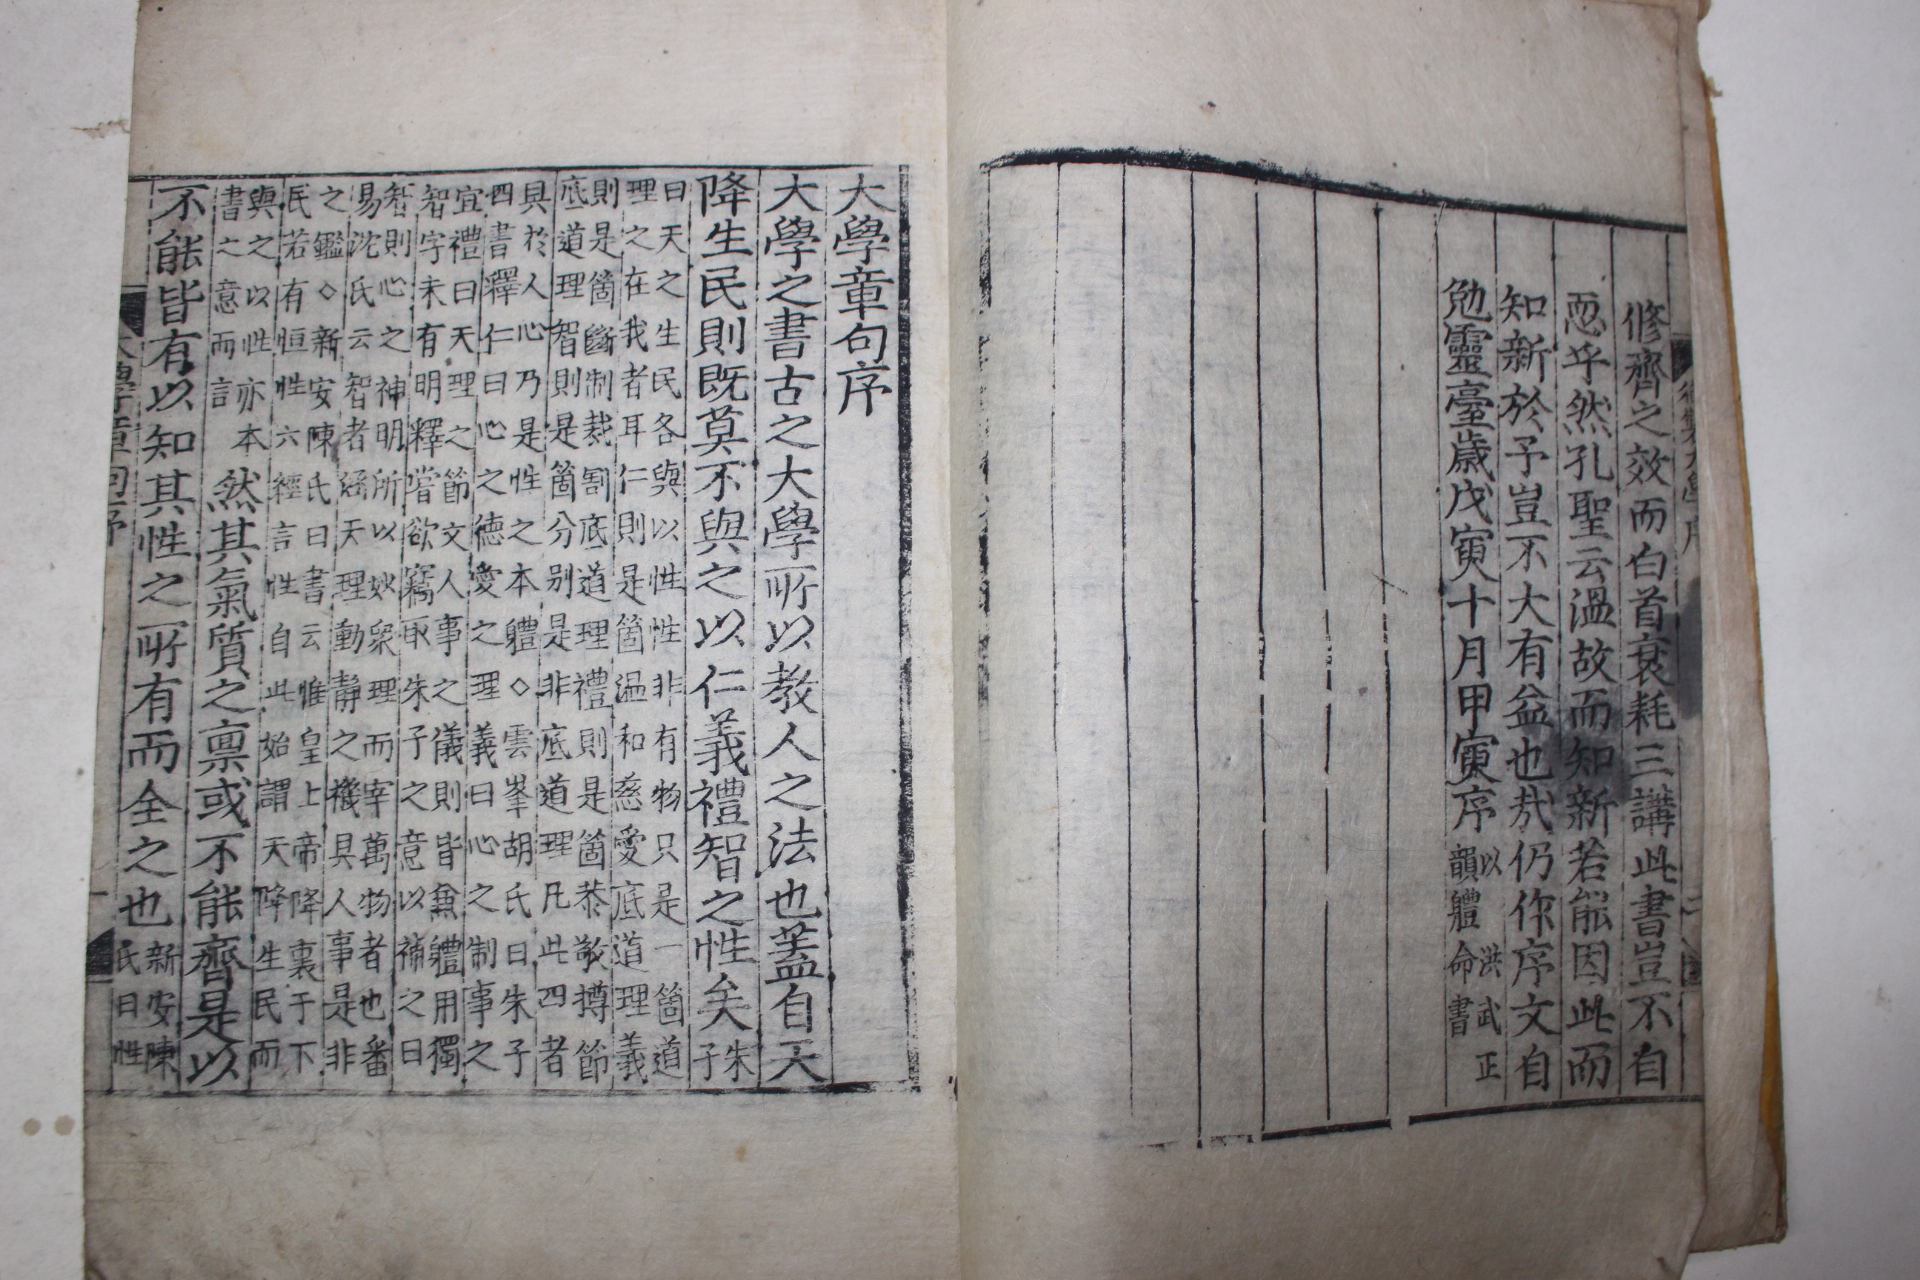 修齊之效而白首衰耗三講此書豈不自
恧乎然孔聖云溫故而知新若能因此而
知新於予豈不大有益也㢤仍作序文自
勉靈臺歲戊寅十月甲寅序以洪武正
韻體命書
大學章句序
大學之書古之大學所以教人之法也蓋自天
降生民則既莫不與之以仁義禮智之性矣朱
子
曰天之生民各與以性性非有物只是一箇道
理之在我者耳仁則是箇溫和慈愛底道理義
則是箇斷制裁割底道理禮則是箇恭敬撙節
底道理智則是箇分别是非底道理凡此四者
具於人心乃是性之本體◇雲峯胡氏曰朱子
四書釋仁曰心之德愛之理義曰心之制事之
宜禮曰天理之節文人事之儀則皆兼體用獨
智字未有明釋嘗欲竊取朱子之意以補之曰
智則心之神明所以妙衆理而宰萬物者也番
易沈氏云智者涵天理動靜之機具人事是非
之鑑◇新安陳氏曰書云惟皇上帝降衷于下
民若有恒性六經言性自此始謂天降生民而
與之以性亦本
書之意而言
然其氣質之稟或不能齊是以
不能皆有以知其性之所有而全之也新安陳
氏曰性
大學章句序